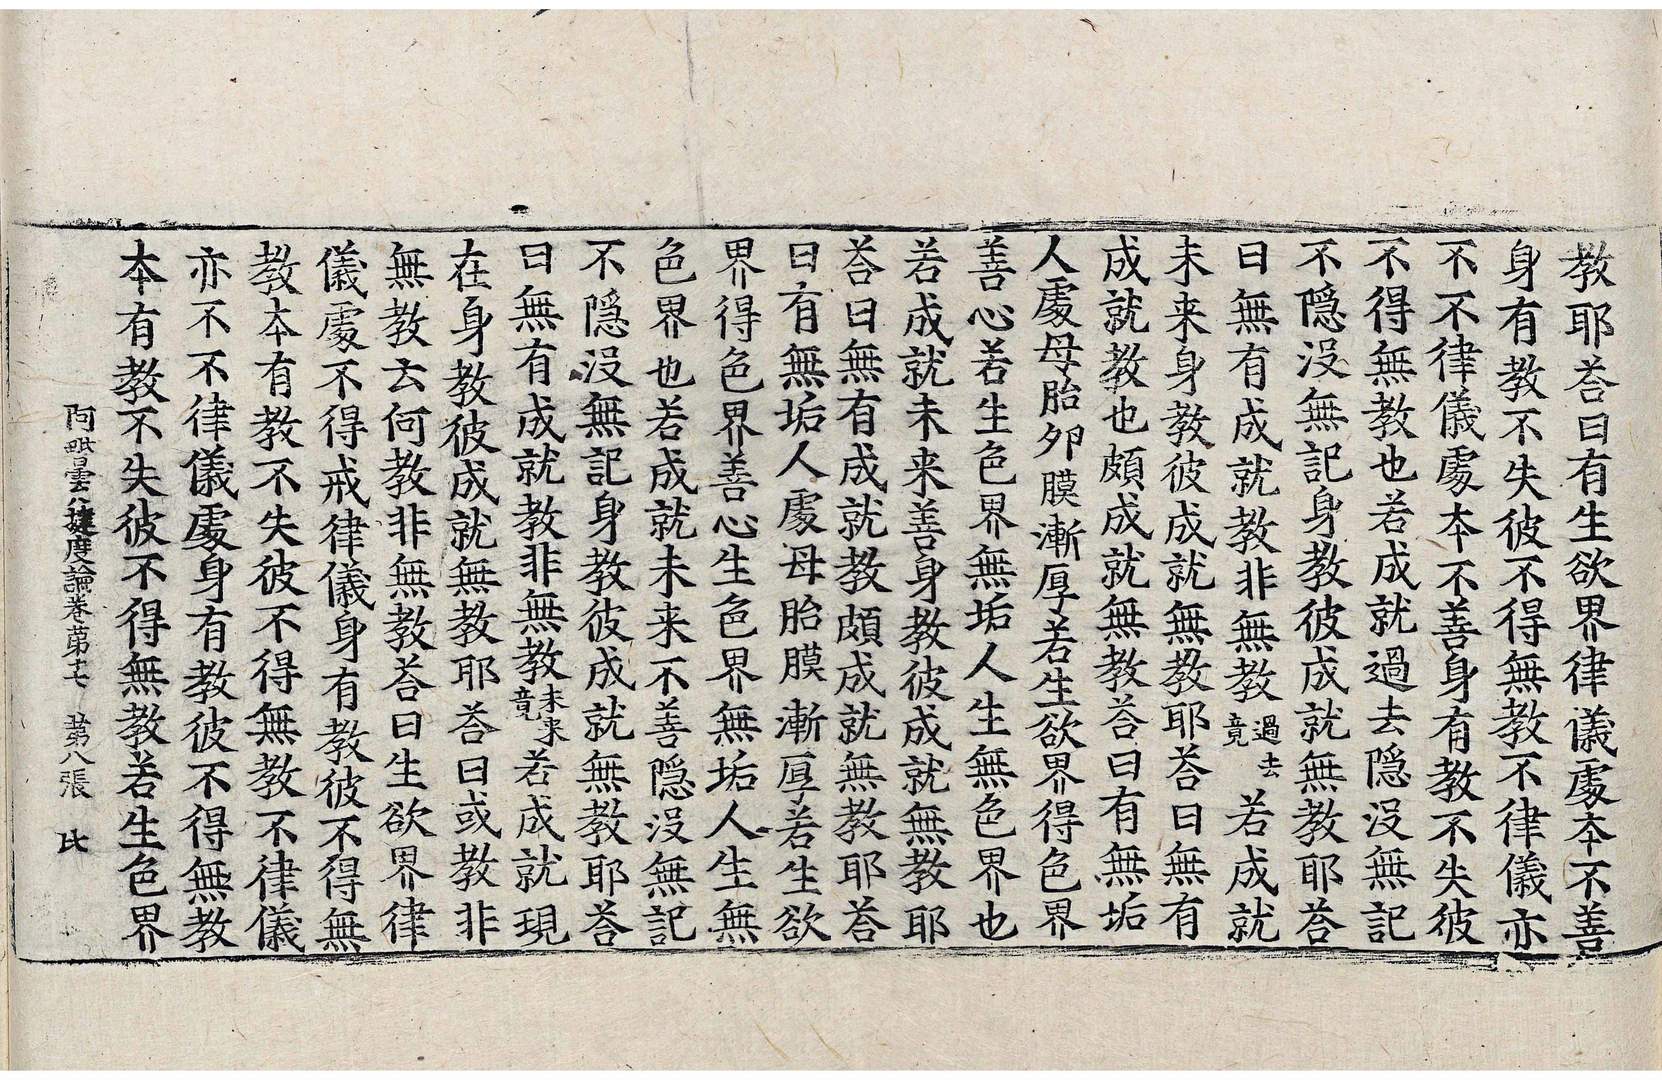 教耶荅曰有生欲界律儀處本不善
身有教不失彼不得無教不律儀亦
不不律儀處本不善身有教不失彼
不得無教也若成就過去隱沒無記
不隱沒無記身教彼成就無教耶荅
曰無有成就教非無教過去竟若成就
未来身教彼成就無教耶荅曰無有
成就教也頗成就無教荅曰有無垢
人處母胎夘膜漸厚若生欲界得色界
善心若生色界無垢人生無色界也
若成就未来善身教彼成就無教耶
荅曰無有成就教頗成就無教耶荅
曰有無垢人處母胎膜漸厚若生欲
界得色界善心生色界無垢人生無
色界也若成就未来不善隱沒無記
不隱沒無記身教彼成就無教耶荅
曰無有成就教非無教未来竟若成就現
在身教彼成就無教耶荅曰或教非
無教云何教非無教荅曰生欲界律
儀處不得戒律儀身有教彼不得無
教本有教不失彼不得無教不律儀
亦不不律儀處身有教彼不得無教
本有教不失彼不得無教若生色界
阿毗曇八犍度論卷第十七　第八張　比